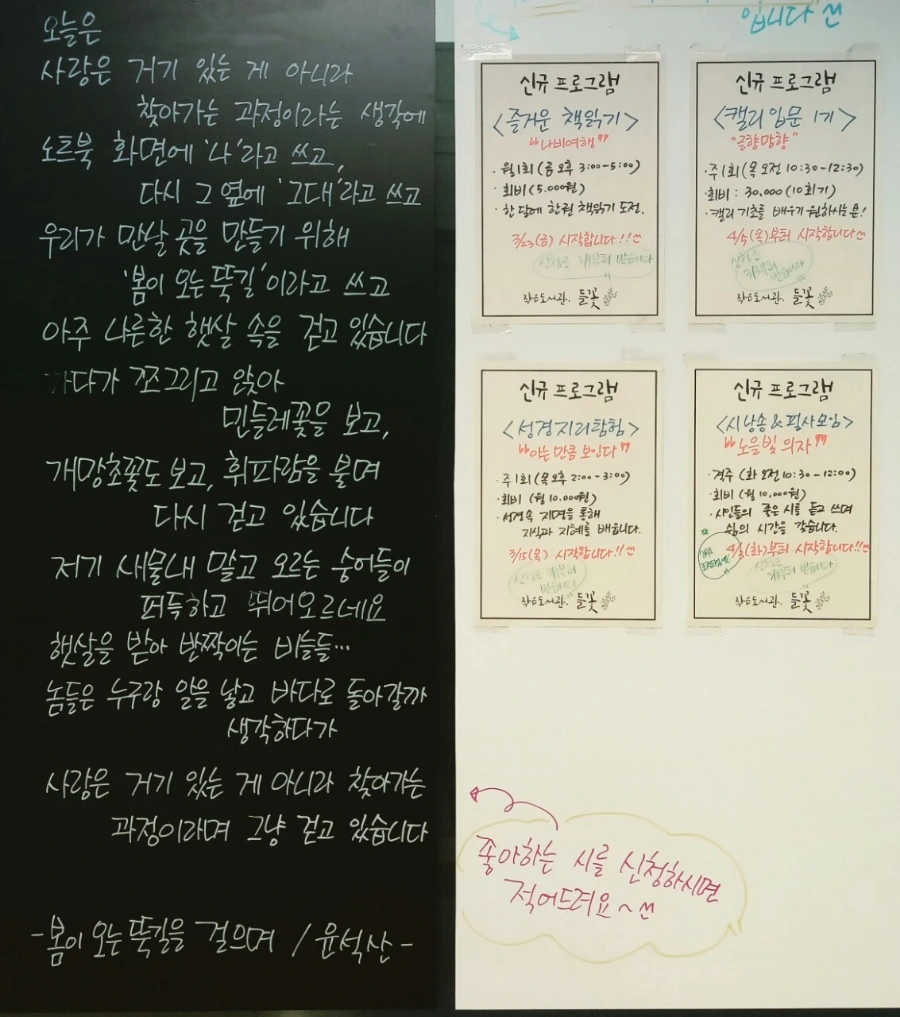 오늘은
사랑은 거기 있는 게 아니라
찾아가는 과정이라는 생각에
노트북 화면에 '나'라고 쓰고,
다시 그 옆에 '그대'라고 쓰고
우리가 만날 곳을 만들기 위해
'봄이 오는 뚝길'이라고 쓰고
아주 나른한 햇살 속을 걷고 있습니다
가다가 쪼그리고 앉아
민들레꽃을 보고,
개망초꽃도 보고, 휘파람을 불며
다시 걷고 있습니다
저기 새물내 맡고 오르는 숭어들이
퍼득하고 뛰어오르네요
햇살을 받아 반짝이는 비늘들...
놈들은 누구랑 알을 낳고 바다로 돌아갈까
생각하다가
사랑은 거기 있는 게 아니라 찾아가는
과정이라며 그냥 걷고 있습니다
- 봄이 오는 뚝길을 걸으며 / 윤석산 -
입니다
신규 프로그램
<즐거운 책읽기>
"나비여행"
· 월1회 (금 오후 3:00-5:00)
· 회비 (5,000원)
· 한 달에 한권 책읽기 도전.
3/23(금) 시작합니다!!
신청은 재부터 받습니다
작은도서관.. 들꽃
신규 프로그램
<캘리 입문 1기>
"글향망향"
· 주1회 (목 오전 10:30-12:30)
· 회비 : 30,000 (10회기)
· 캘리 기초를 배우기 원하시는 분!
4/5(목)부터 시작합니다
작은도서관.. 들꽃
신규 프로그램
<성경지리탐험>
"아는 만큼 보인다"
· 주1회 (목 오후 2:00-3:00)
· 회비 (월 10,000원)
· 성경속 지명을 통해
지식과 지혜를 배웁니다.
3/15(목) 시작합니다!!
작은도서관.. 들꽃
신규 프로그램
<시낭송 & 필사모임>
"노을빛 의자"
· 격주 (화 오전 10:30-12:00)
· 회비 (월 10,000원)
· 시인들의 좋은 시를 듣고 쓰며
쉼의 시간을 갖습니다.
4/3(화)부터 시작합니다!!
작은도서관.. 들꽃
좋아하는 시를 신청하시면
적어드려요~